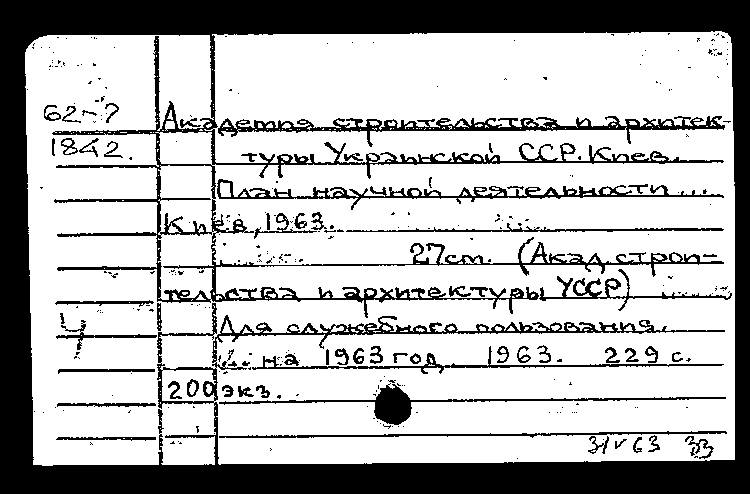 62-7
Академия строительства и архитек-
1842.
туры Украинской ССР. Киев.
План научной деятельности ...
Киев, 1963.
27 cm. (Акад. строи-
тельства и архитектуры УССР)
Для служебного пользования.
Ч
на 1963 год 1963. 229 с.
200 экз.
31 V 63 33